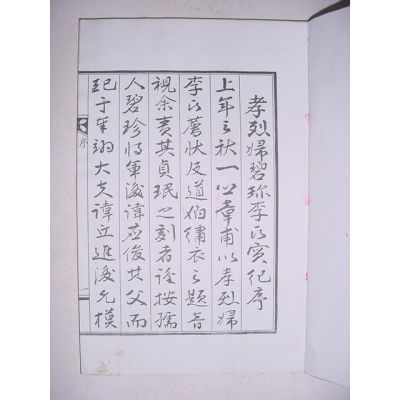 孝烈婦碧珍李氏實紀序
上年之秋一章甫以孝烈婦
李氏狀及道伯繡衣之題音
視余責其貞珉之刻者謹按孺
人碧珍將軍後諱應俊其父而
配于奉翊大夫諱立進後允模
序